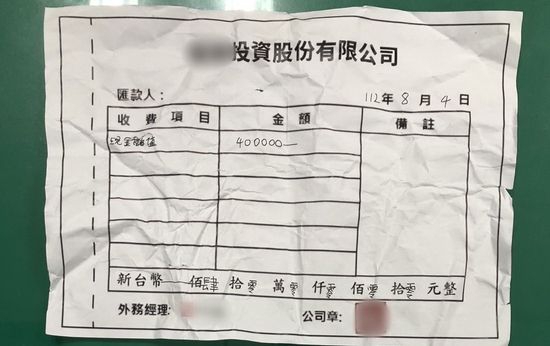 投資股份有限公司
匯款人： 112年 8 月 4 日
收 費 項 目 金 額 備 註
現金儲值 400000—
新台幣 佰肆 拾零 萬零 仟零 佰零 拾零 元整
外務經理: 公司章: